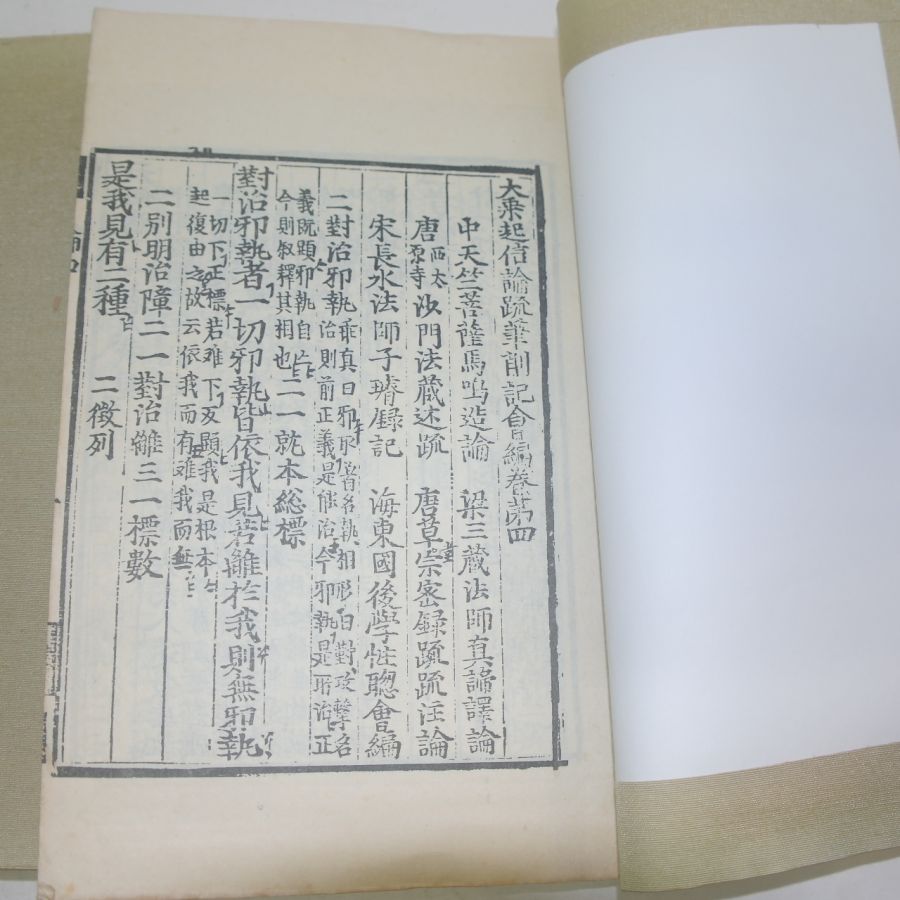 大乘起信論疏筆削記會編卷第四
中天竺菩薩馬鳴造論 梁三藏法師真諦譯論
唐西太原寺沙門法藏述疏 唐草堂宗密録疏注論
宋長水法師子璿録記 海東國後學性聰會編
二對治邪執乖真曰邪取著名執相形白對攻擊名
治則前正義是能治今邪執是所治正
義既顯邪執自亡
今則叙釋其相也二一就本総標
對治邪執者一切邪執皆依我見若離於我則無邪執
一切下正標若难下反顯我是根本
起復由之故云依我而有难我而無
二別明治障二一對治離三一標數
是我見有二種 二徵列